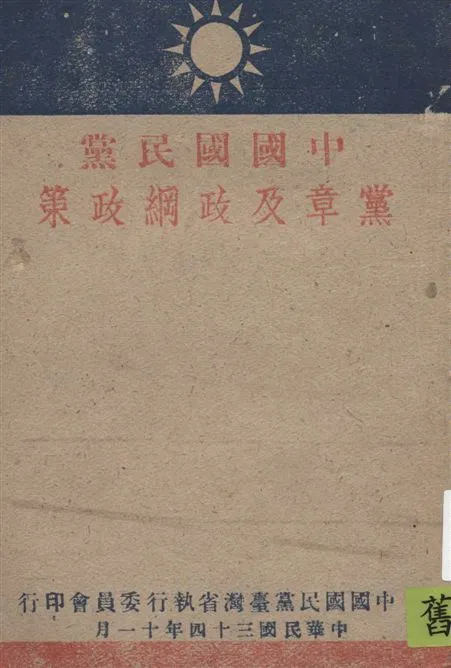 中國國民黨
黨章及政綱政策
中國國民黨臺灣省執行委員會印行
中華民國三十四年十一月
舊